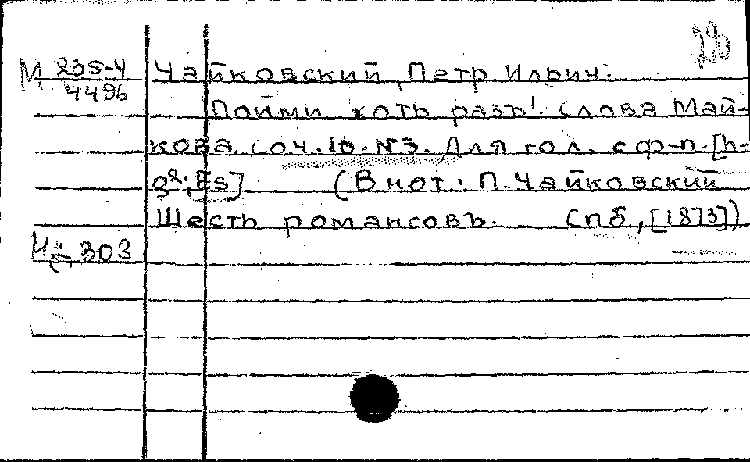 М 235-4 Чайковский, Петр Ильич.
4496 Пойми хоть разъ! Слова Май-
кова. Соч. 16. №3. Для гол. с ф-п. [h-
g²; Es] (В нот.: П. Чайковский
Шесть романсовъ. Спб, [1873])
303